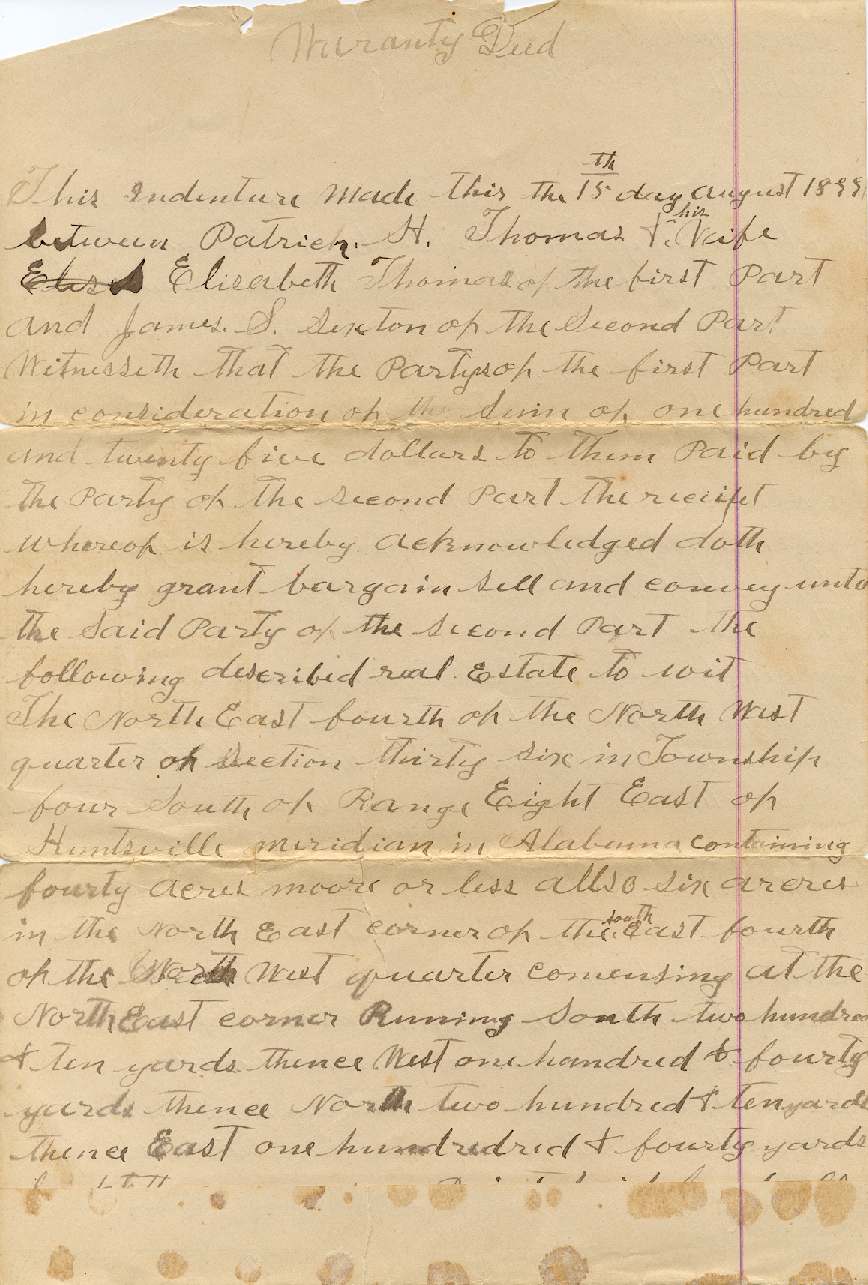 Waranty Deed
This Indenture Made this the 15th day august 1899
between Patrick. H. Thomas &. his Wife
Elisabeth Thomas of the first Part
and James. S. Sexton of the Second Part
Witnesseth that the Partys of the first Part
in consideration of the Sum of one hundred
and twenty five dollars to them Paid by
the Party of the second Part the reciept
whereof is hereby acknowledged doth
hereby grant bargain sell and convey unto
the Said Party of the second Part the
following described real. Estate to wit
The North East fourth of the North West
quarter of Section thirty six in Township
four South of Range Eight East of
Huntsville meridian in Alabama containing
fourty acres moore or less allso six acres
in the North East corner of the south East fourth
of the North West quarter comensing at the
North East corner Running South two hundred
& ten yards thence West one hundred & fourty
yards thence North two hundred & ten yards
thence East one hundredred & fourty yards